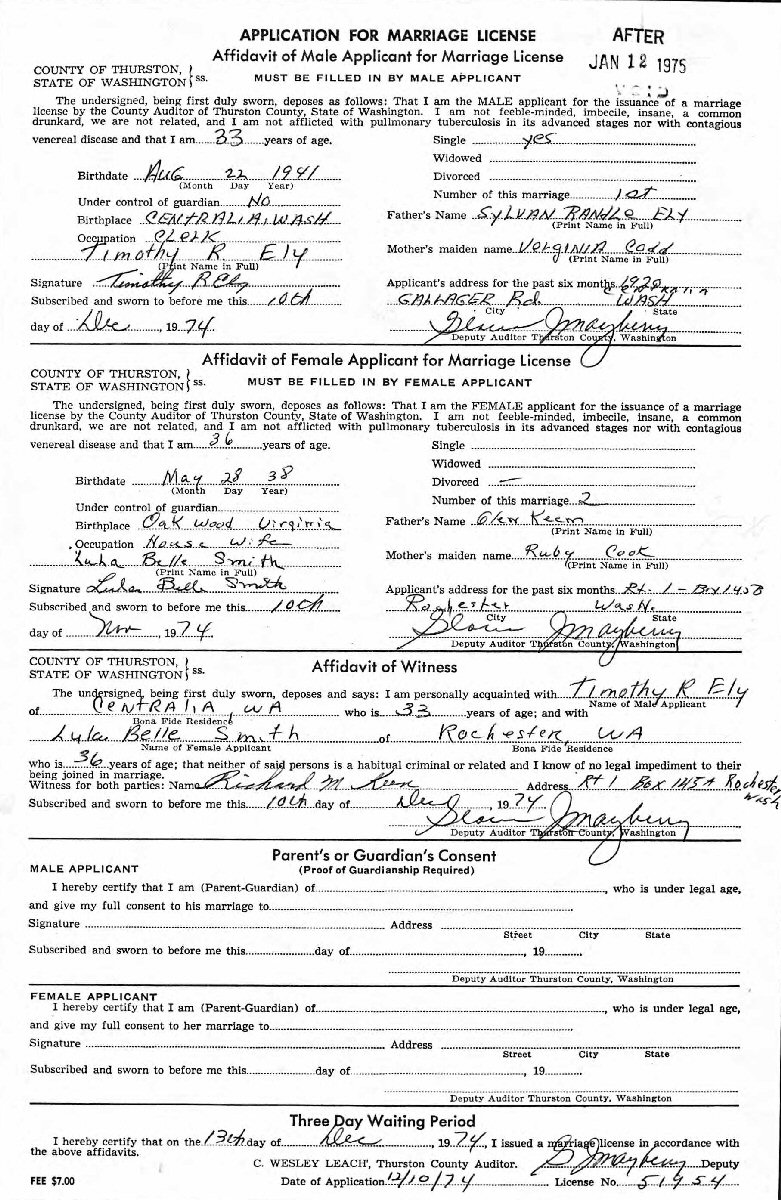 APPLICATION FOR MARRIAGE LICENSE
AFTER
JAN 12 1975
VOID
Affidavit of Male Applicant for Marriage License
COUNTY OF THURSTON,
STATE OF WASHINGTON } ss.
MUST BE FILLED IN BY MALE APPLICANT
The undersigned, being first duly sworn, deposes as follows: That I am the MALE applicant for the issuance of a marriage
license by the County Auditor of Thurston County, State of Washington. I am not feeble-minded, imbecile, insane, a common
drunkard, we are not related, and I am not afflicted with pullmonary tuberculosis in its advanced stages nor with contagious
venereal disease and that I am 33 years of age.
Single yes
Widowed
Birthdate Aug 22 1941
(Month Day Year)
Divorced
Under control of guardian No
Number of this marriage 1st
Birthplace CENTRALIA, WASH
Father's Name SYLVAN RANDLE ELY
(Print Name in Full)
Occupation CLERK
Timothy R Ely
(Print Name in Full)
Mother's maiden name VERGINIA Codd
(Print Name in Full)
Signature Timothy R Ely
Applicant's address for the past six months 1920 CENTRALIA
Subscribed and sworn to before me this 10th
GALLAGER Rd. WASH
City State
day of Dec, 1974
Deputy Auditor Thurston County, Washington
Affidavit of Female Applicant for Marriage License
COUNTY OF THURSTON,
STATE OF WASHINGTON } ss.
MUST BE FILLED IN BY FEMALE APPLICANT
The undersigned, being first duly sworn, deposes as follows: That I am the FEMALE applicant for the issuance of a marriage
license by the County Auditor of Thurston County, State of Washington. I am not feeble-minded, imbecile, insane, a common
drunkard, we are not related, and I am not afflicted with pullmonary tuberculosis in its advanced stages nor with contagious
venereal disease and that I am 36 years of age.
Single
Widowed
Birthdate May 28 38
(Month Day Year)
Divorced —
Under control of guardian
Number of this marriage 2
Birthplace Oak Wood Virginia
Father's Name Glen Keen
(Print Name in Full)
Occupation House Wife
Lula Belle Smith
(Print Name in Full)
Mother's maiden name Ruby Cook
(Print Name in Full)
Signature Lula Belle Smith
Applicant's address for the past six months Rt. 1 - Bx 145B
Subscribed and sworn to before me this 10th
Rochester Wash.
City State
day of Nov, 1974
Deputy Auditor Thurston County, Washington
COUNTY OF THURSTON,
STATE OF WASHINGTON } ss.
Affidavit of Witness
The undersigned, being first duly sworn, deposes and says: I am personally acquainted with Timothy R Ely
Name of Male Applicant
of CENTRALIA, WA who is 33 years of age; and with
Bona Fide Residence
Lula Belle Smith of Rochester, WA
Name of Female Applicant Bona Fide Residence
who is 36 years of age; that neither of said persons is a habitual criminal or related and I know of no legal impediment to their
being joined in marriage.
Witness for both parties: Name Richard M Keen Address Rt 1 Box 145A Rochester, Wash
Subscribed and sworn to before me this 10th day of Dec, 1974
Deputy Auditor Thurston County, Washington
Parent's or Guardian's Consent
MALE APPLICANT
(Proof of Guardianship Required)
I hereby certify that I am (Parent-Guardian) of, who is under legal age,
and give my full consent to his marriage to
Signature Address
Street City State
Subscribed and sworn to before me this day of, 19
Deputy Auditor Thurston County, Washington
FEMALE APPLICANT
I hereby certify that I am (Parent-Guardian) of, who is under legal age,
and give my full consent to her marriage to
Signature Address
Street City State
Subscribed and sworn to before me this day of, 19
Deputy Auditor Thurston County, Washington
Three Day Waiting Period
I hereby certify that on the 13th day of Dec, 1974, I issued a marriage license in accordance with
the above affidavits.
C. WESLEY LEACH, Thurston County Auditor. S Jmayberry Deputy
FEE $7.00
Date of Application 12/10/74 License No. 51954